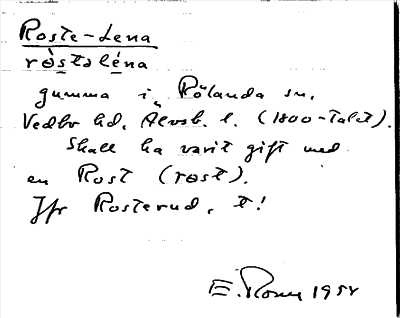 Roste-Lena
ròstəléna
gumma i Rölanda sn,
Vedbo hd, Älvsb. l. (1800-talet).
Skall ha varit gift med
en Rost (rost).
Jfr Rosterud, t!
E. 1954